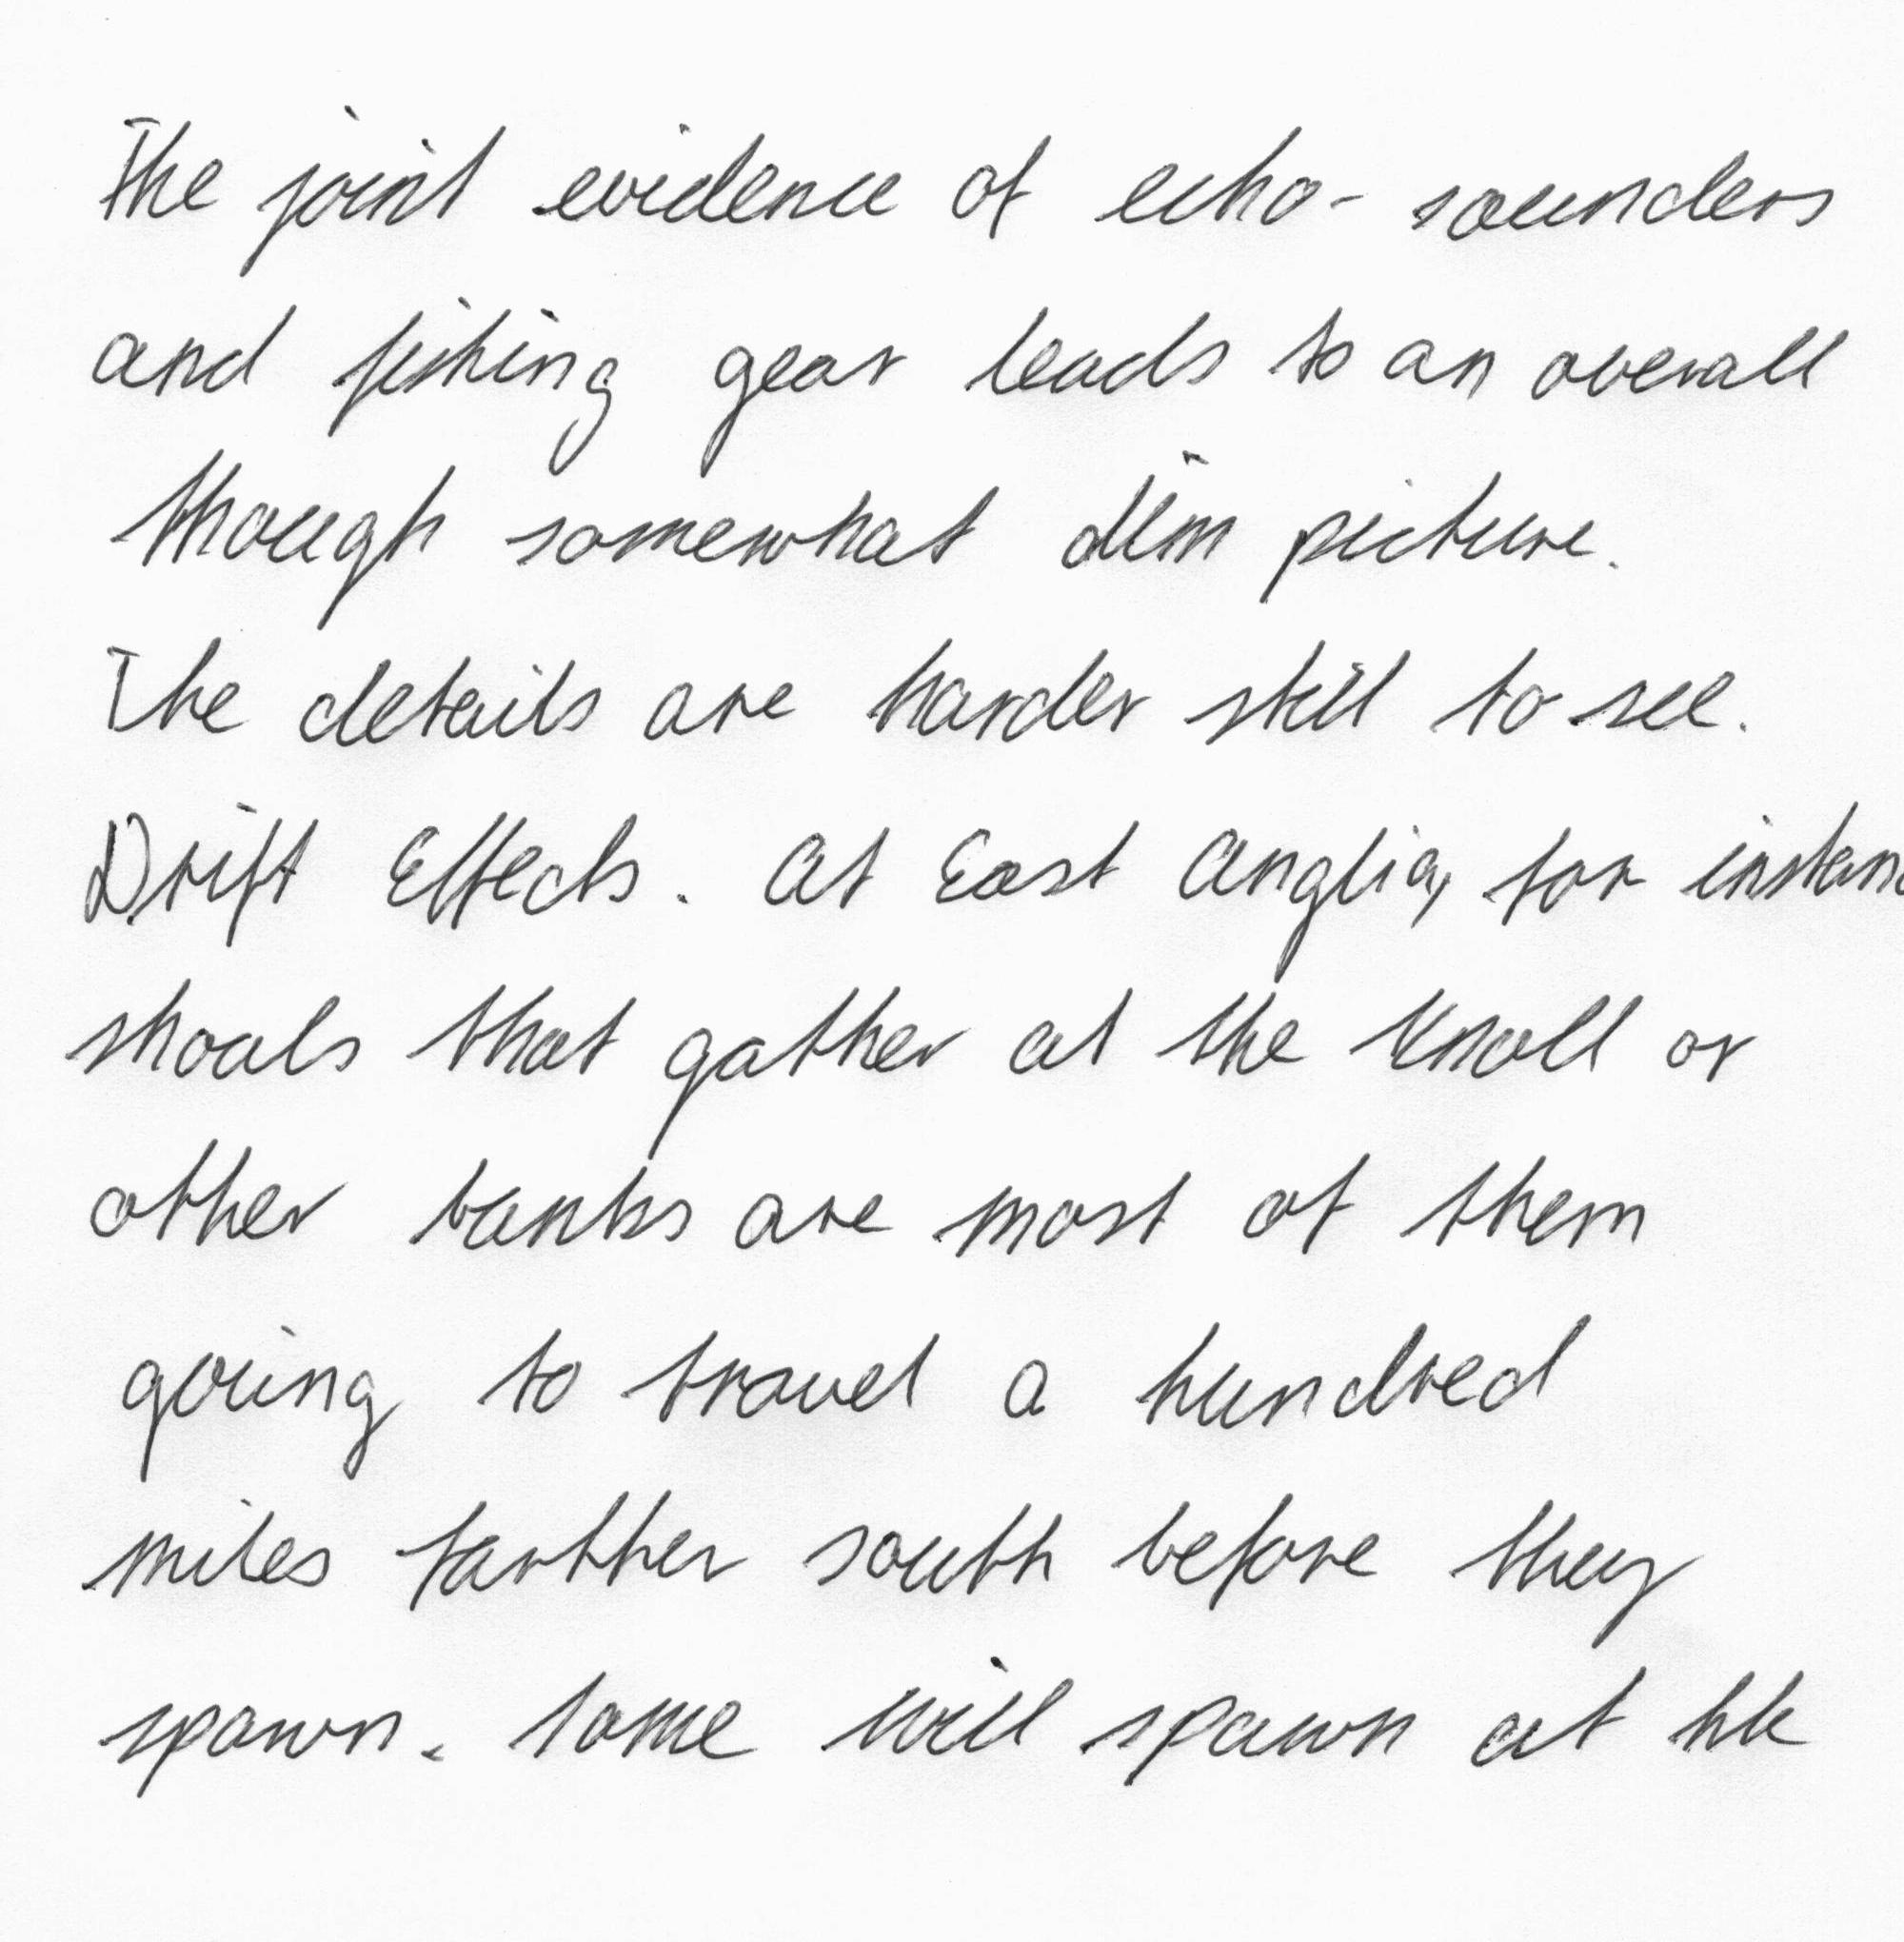 The joint evidence of echo-sounders
and fishing gear leads to an overall
though somewhat dim picture.
The details are harder still to see.
Drift Effects. At East Anglia, for
shoals that gather at the Knoll or
other banks are most of them
going to travel a hundred
miles farther south before they
spawn. Some will spawn at